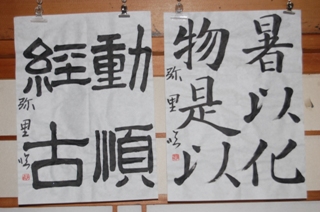 暑以化
物是以
弥里
動順
經古
弥里